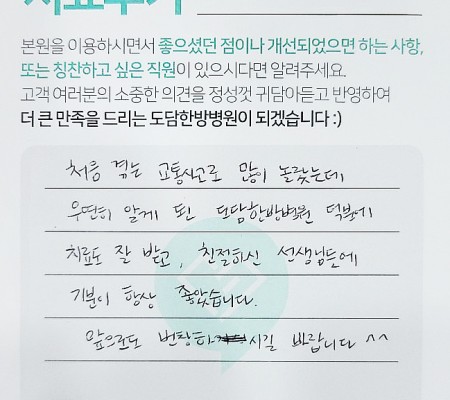 치료후기
본원을 이용하시면서 좋으셨던 점이나 개선되었으면 하는 사항,
또는 칭찬하고 싶은 직원이 있으시다면 알려주세요.
고객 여러분의 소중한 의견을 정성껏 귀담아듣고 반영하여
더 큰 만족을 드리는 도담한방병원이 되겠습니다 :)
처음 겪는 교통사고로 많이 놀랐는데
우연히 알게 된 도담한방병원 덕분에
치료도 잘 받고, 친절하신 선생님들에
기분이 항상 좋았습니다.
앞으로도 번창하시길 바랍니다 ^^